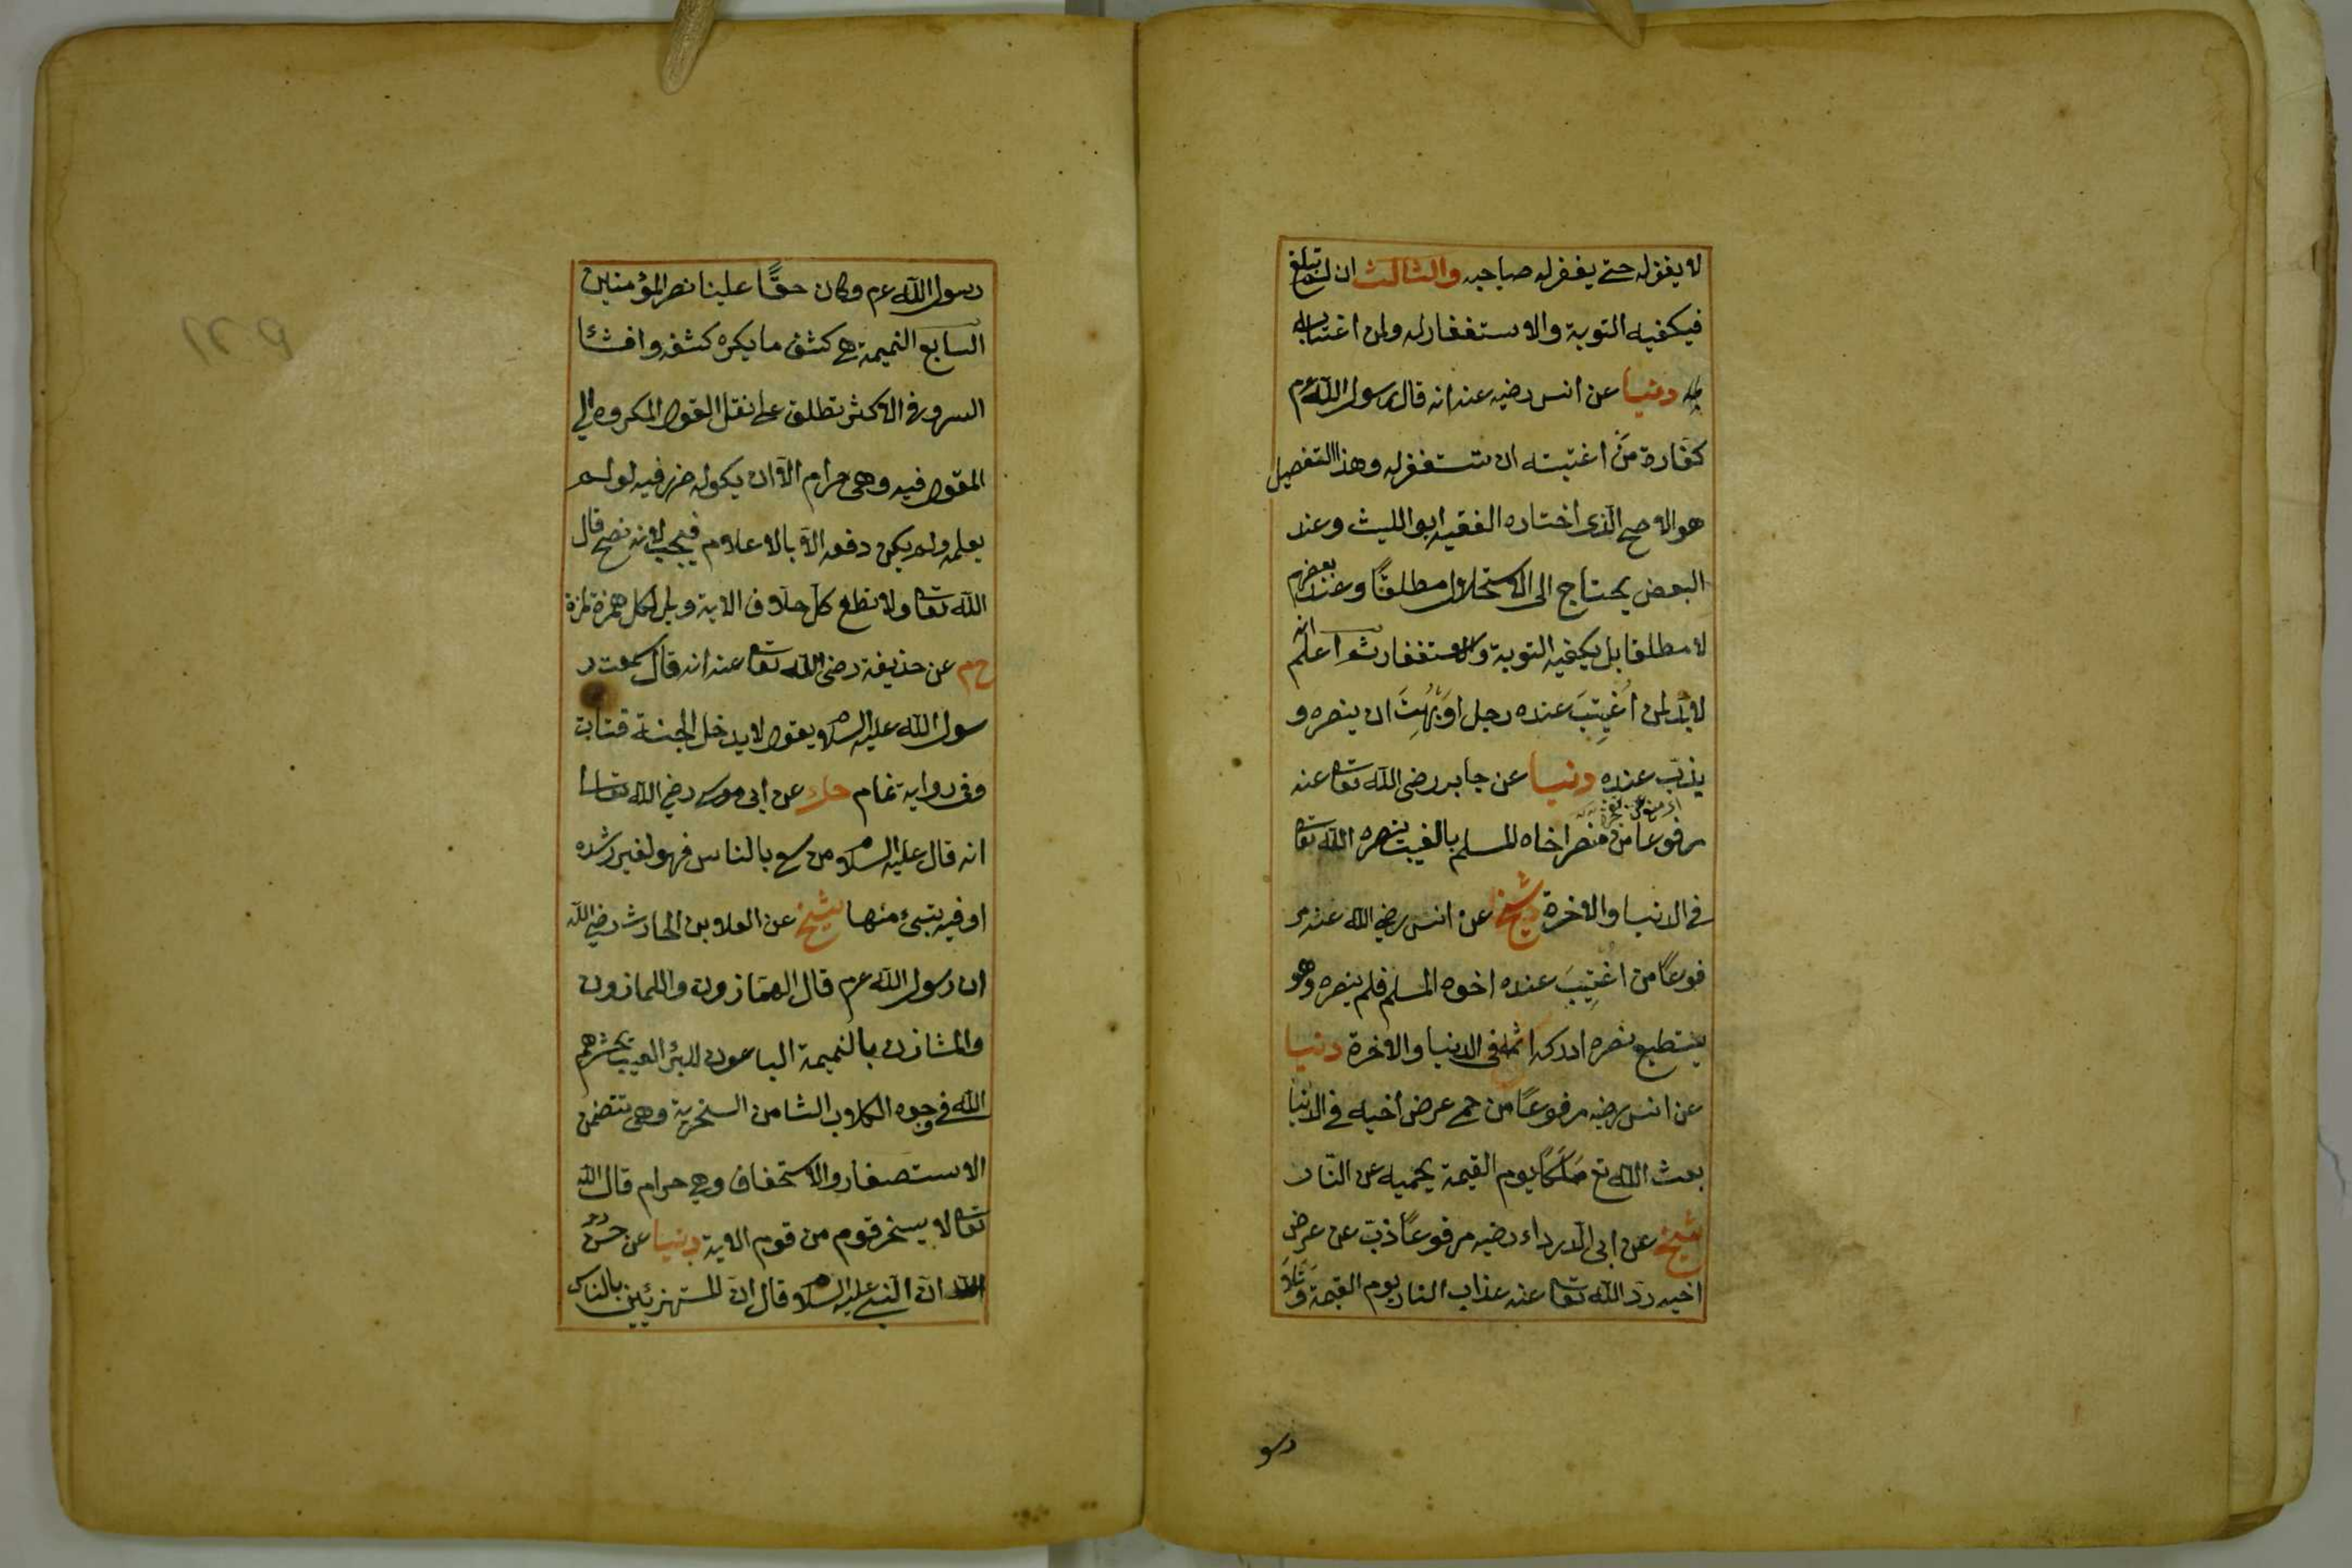 لا يغفر له حتى يغفر له صاحبه والثالث ان لم تبلغ
فيكفيه التوبة والاستغفار له ولمن اغتابه
دنيا عن انس رضيه عنه انه قال رسول الله عم
كفارة من اغتبته ان تستغفر له وهذا التفصيل
هو الاصح الذى اختاره الفقيه ابو الليث وعند
البعض يحتاج الى الاستحلال مطلقًا وعند بعضهم
لا مطلقا بل يكفيه التوبة والاستغفار ثم اعلم انه
لابد لمن اُغتِيبَ عنده رجل او بُهِتَ ان ينصره و
يذب عنده دنيا عن جابر رضى الله تعا عنه
مرفوعا من نصر اخاه المسلم بالغيب نصره الله تعا
فى الدنيا والاخرة شيخ عن انس رضي الله عنه مر
فوعًا من اُغتِيبَ عنده اخوه المسلم فلم ينصره وهو
يستطيع نصره ادركه اثمه فى الدنيا والاخرة دنيا
عن انس رضيه مرفوعًا من حمى عرض أخيه فى الدنيا
بعث الله تع مَلَكًا يوم القيمة يحميه عن النار
شيخ عن ابى الدرداء رضيه مرفوعًا ذبّ عن عرض
اخيه ردّ الله تعا عنه عذاب النار يوم القيمة وتلا
رسو
رسول الله عم وكان حقًّا علينا نصر المؤمنين
السابع النميمة هى كشف ما يكره كشفه وافشا
السر وفى الاكثر تطلق على نقل القول المكروه الى
المقول فيه وهى حرام الّا ان يكون له ضرر فيه لو لم
يعلمه ولم يكن دفعه الّا بالاعلام فيجب لانه نصح قال
الله تعا ولا تطع كل حلاف الاية ويل لكل همزة لمزة
خ م عن حذيفة رضى الله تعا عنه انه قال سمعت ر
سول الله عليه السلام يقول لا يدخل الجنة قتات
وفى رواية نمام حك عن ابى موسى رضي الله تعالى
انه قال عليه السلام من سعى بالناس فهو لغير رشده
او فيه شىء منها شيخ عن العلا بن الحارث رضي الله
ان رسول الله عم قال الهمّازون واللمازون
والمشاؤن بالنميمة الباغون للبرء العيب يحشرهم
الله فى وجوه الكلاب الثامن السخرية وهى تتضمن
الاستصغار والاستخفاف وهى حرام قال الله
تعا لا يسخر قوم من قوم الاية دنيا عن حسن
انّ النبى عليه السلام قال انّ المستهزئين بالناس